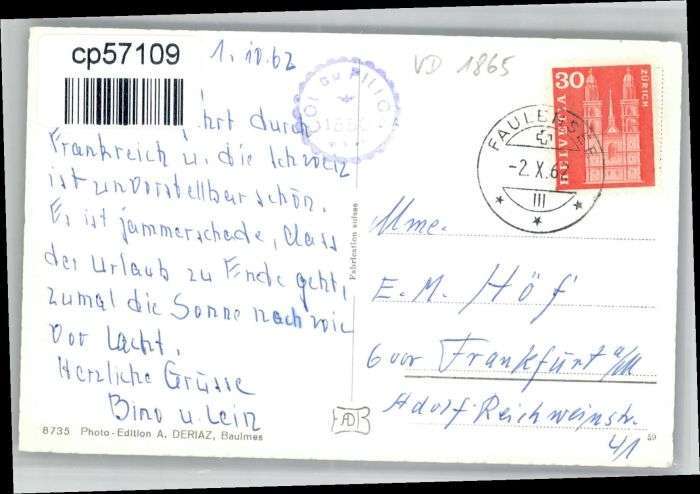 cp57109
1. 10. 62
VD 1865
COL DU PILLON
30
HELVETIA
ZÜRICH
FAULENSEE
-2. X. 62
III
hrt durch
Frankreich u. die Schweiz
ist unvorstellbar schön.
Es ist jammerschade, dass
der Urlaub zu Ende geht,
zumal die Sonne nach wie
vor lacht.
Herzliche Grüsse
Bino u.
Fabrication suisse
Mme.
E. M. Höf
6000 Frankfurt a/M
Adolf-Reichweinstr.
4/1
8735 Photo-Edition A. DERIAZ, Baulmes
AD
59